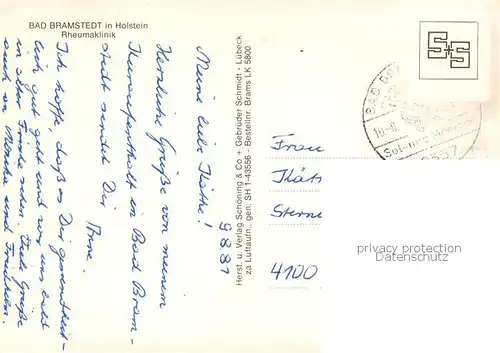 BAD BRAMSTEDT in Holstein
Rheumaklinik
Meine liebe Käthe!
Herzliche Grüße von meinem
Kuraufenthalt in Bad Bram-
stedt sendet Dir
Anne.
Ich hoffe, daß es Dir gesundheit-
lich gut geht und wir uns bald
in alter Frische sehen. Viele Grüße
auch an Monika und
Herst. u. Verlag Schöning & Co + Gebrüder Schmidt - Lübeck
za Luftaufn., gen. SH 1-43556 - Bestellnr. Brams LK 5800
S+S
BAD
Frau
Käth
Sterne
4100
privacy protection
Datenschutz